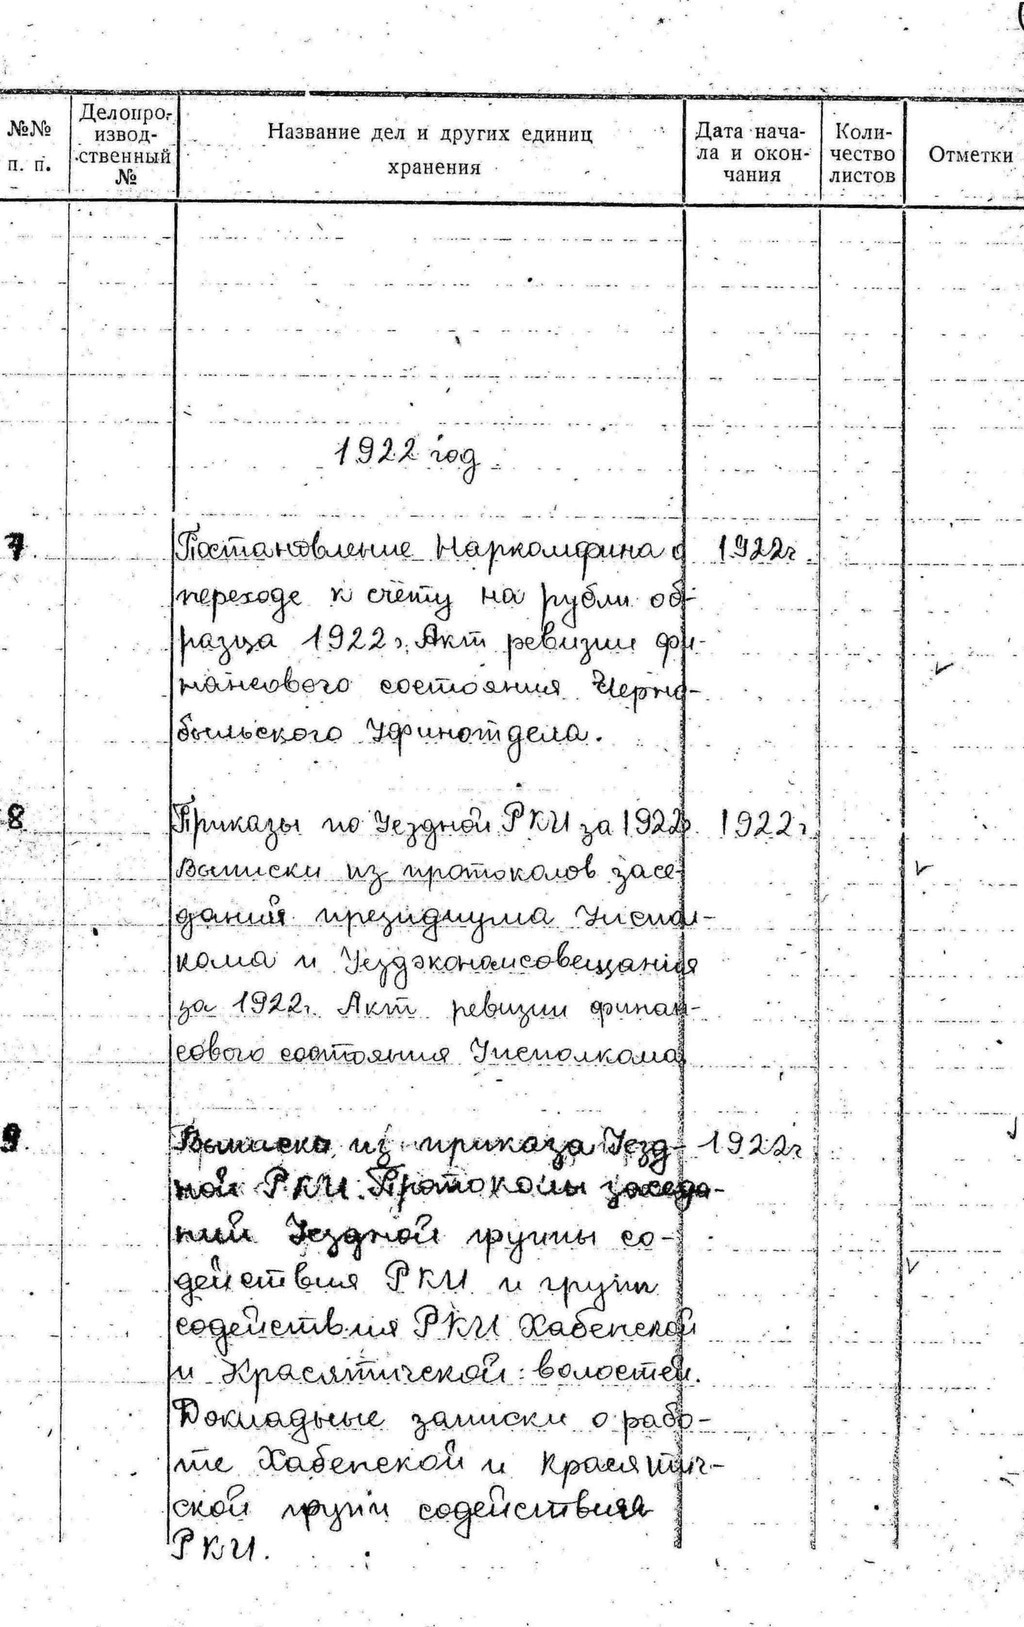 №№ п. п.
Делопроизвод-ственный №
Название дел и других единиц хранения
Дата нача-ла и окон-чания
Коли-чество листов
Отметки
1922 год
7 Постановление Наркомфина о 1922г
переходе к счёту на рубли об-
разца 1922г. Акт ревизии фи-
нансового состояния Черно-
быльского Уфинотдела.
8 Приказы по Уездной РКИ за 1922г. 1922г.
Выписки из протоколов засе-
даний президиума Уиспол-
кома и Уездэкономсовещания
за 1922г. Акт ревизии финан-
сового состояния Уисполкома
9 Выписка из приказа Уезд- 1922г
ной РКИ. Протоколы заседа-
ний Уездной группы со-
действия РКИ и групп
содействия РКИ Хабенской
и Красятичской волостей.
Докладные записки о рабо-
те Хабенской и Красятич-
ской групп содействия
РКИ.